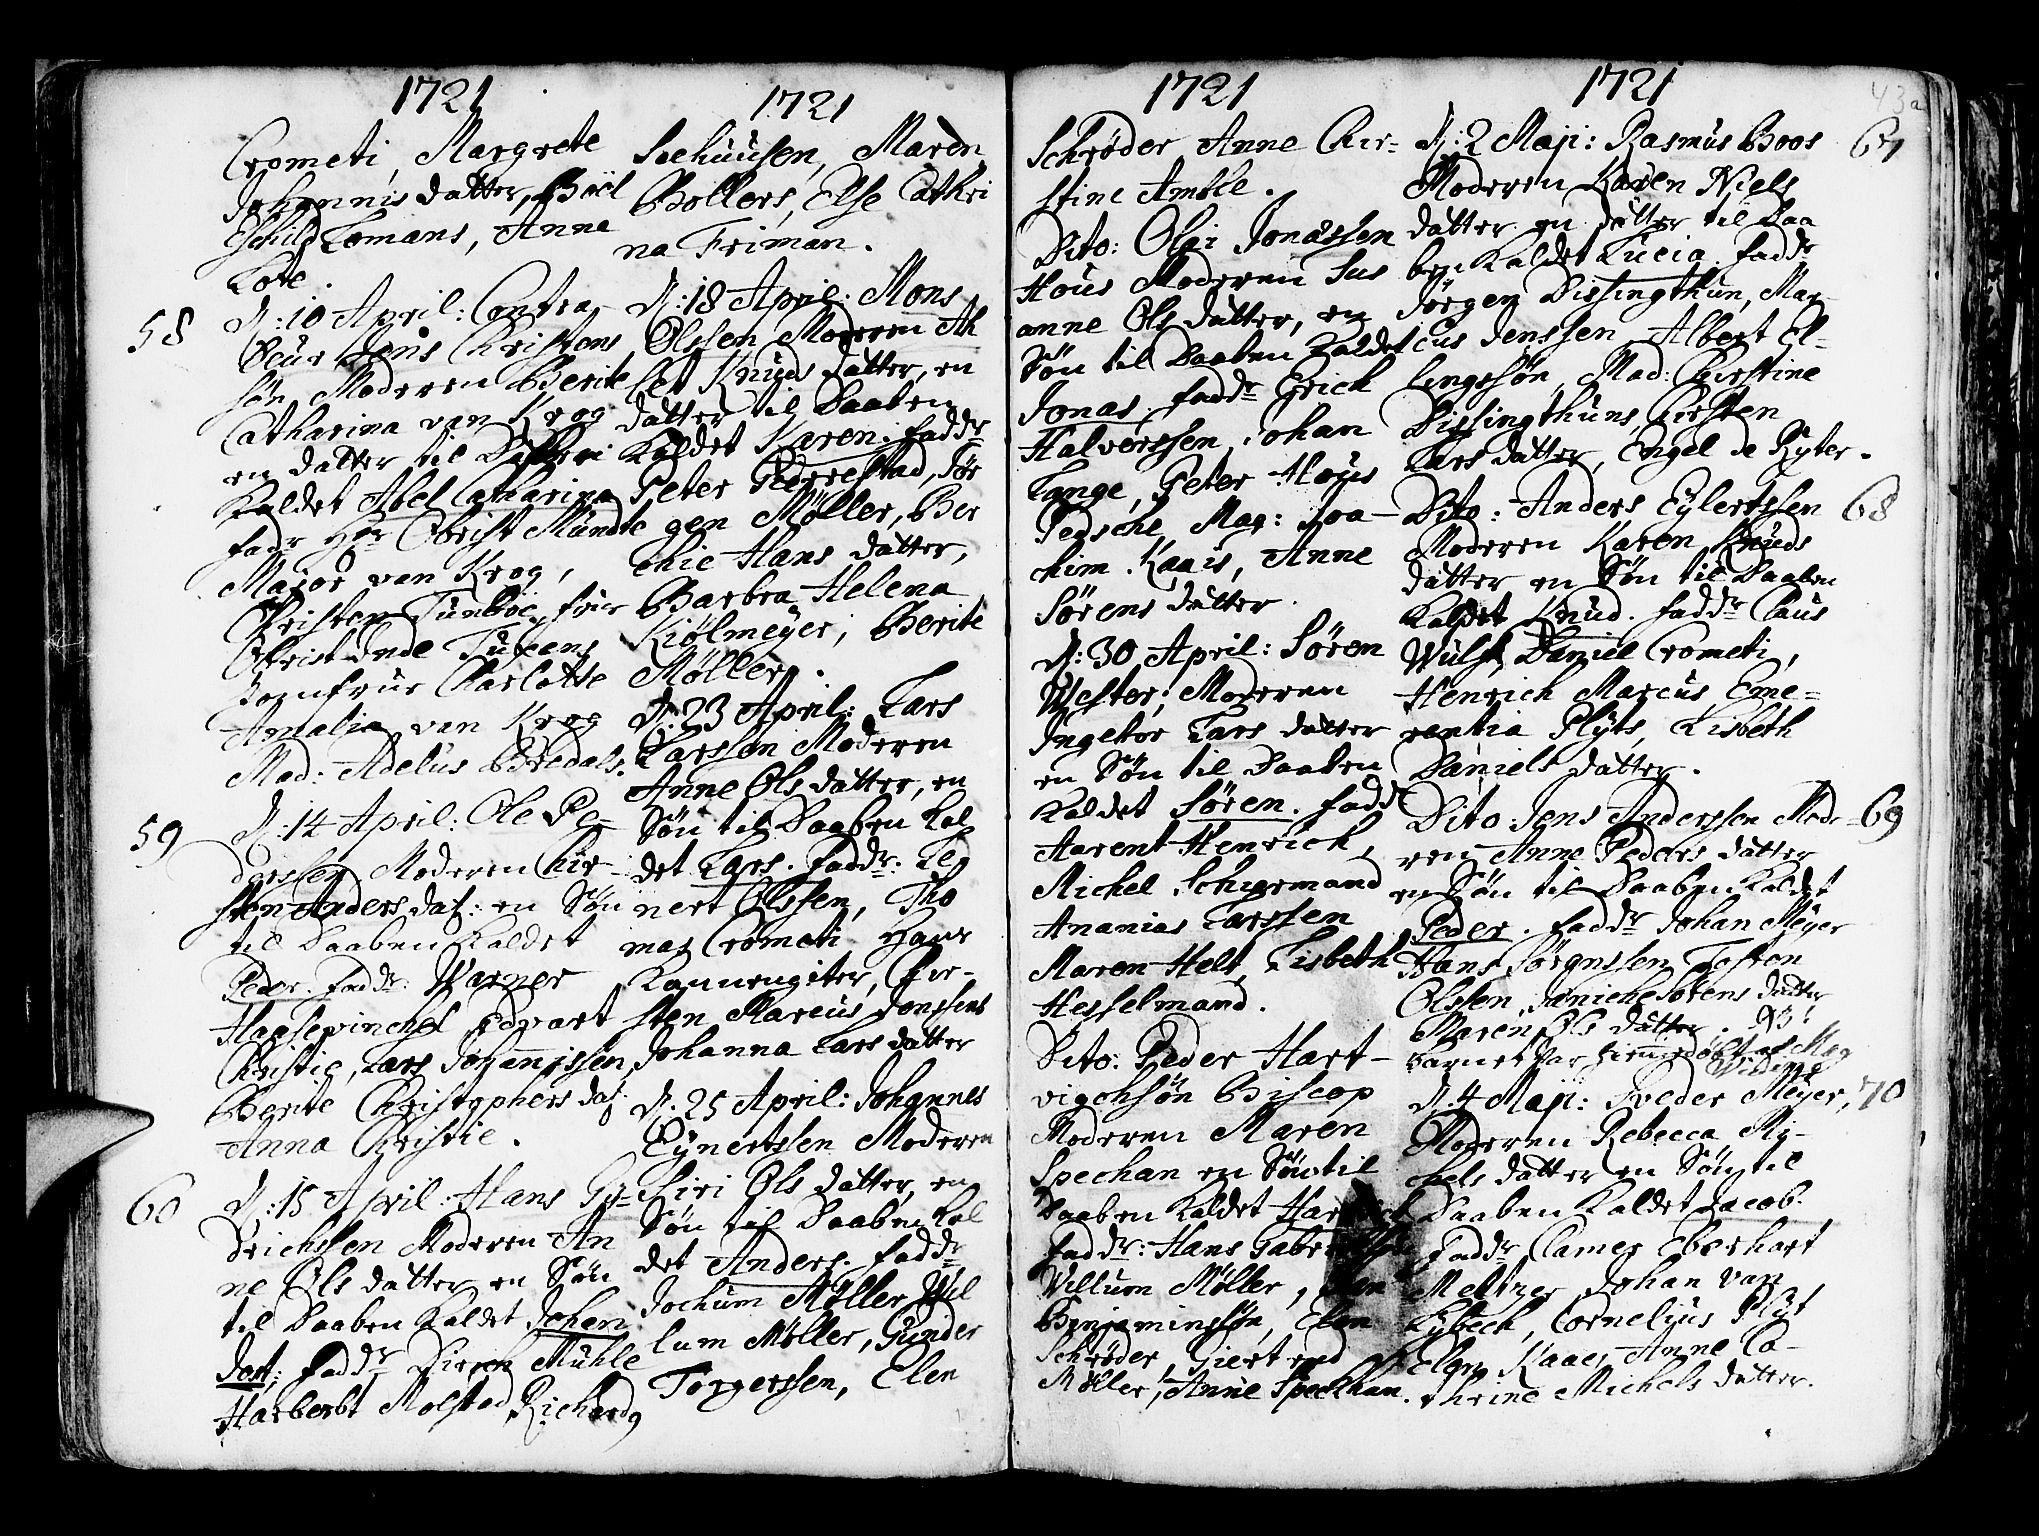 1721
Crometi, Margrete
Johannis datter, Boel
Eschild Lomans, Anne
Lote.
58
D: 10 April: Contra
Jens Christens
søn Moderen Berite
Catharina van Krog
en datter til
Kaldet Abel Catharina
fadr Hr Obrist Mundte
Major van Krog,
Christen
Obrist
Jomfrue Charlotte
Amalia van Krog
Mad: Adelus Bredals.
59
D: 14 April: Ole Pe-
derssen Moderen Kir-
sten Anders dat: en Søn
til Daaben Kaldet
Peder. faddr: Warner
Haasewinchel Edvart
Christie, Lars Johannissen,
Berite Christophers dat:
Anna Christie.
60
D: 15 April: Hans
drichssen Moderen An
ne Ols datter en Søn
til Daaben Kaldet Johan
Jost; faddr Dirich Mühle
Harberbt Molstad, Richard
1721
Soehuusen, Maren
Bollers, Else Cathri
na Friman.
D: 18 April: Mons
Olssen Moderen
Knuds datter, en
datter til Daaben
Kaldet Karen. faddr
Peter Gierrestad, Jør
gen Møller, Ber
the Hans datter,
Barbra Helena
Kiølmeyer, Berite
Møller.
D: 23 April: Lars
Larssen Moderen
Anne Ols datter, en
Søn til Daaben Kal
det Lars. faddr: Leg
nert Olssen, Tho
mas Crometi Hans
Kannengiter, Kir-
sten Marcus Jenssens
Johanna Lars datter
D. 25 April: Johannes
Eynertssen Moderen
Siri Ols datter, en
Søn til Daaben Kal
det Anders. faddr
Jochum Møller Wil
lum Møller, Gunder
Torgerssen, Elen
1721
Schrøder Anne Kir-
stine Amble.
Dito: Olgi Jonassen
Hous Moderen Sus
anne Ols datter, en
Søn til Daaben Kaldet
Jonas. faddr Erich
Halvorssen, Johan
Lange, Peter Hous
Pedsche, Mag: Joa-
chim Kaais, Anne
Sørens datter.
D: 30 April: Søren
Wester, Moderen
Ingebor Lars datter
en Søn til Daaben
Kaldet Søren. fadd
Aarent Henrich,
Michel Schiermand
Ananias Larssen
Maren Helt, Lisbeth
Hesselmand.
Dito: Peder Hart-
vigohsøn Biscop
Moderen Maren
Spechan en Søn til
Daaben Kaldet
faddr: Hans
Willum Møller,
Benjaminsøn, Elen
Schrøder, Giertrud
Møller, Anne Speckhan.
1721
43a
67
D: 2 Maji: Rasmus Boos
Moderen Karen Niels
datter en datter til Daa
ben Kaldet Lucia. faddr
Jørgen Dissingthun, Mar
cus Jenssen, Albert El-
lingssøn, Mad: Kirstine
Dissingthuns, Kirsten
Lars datter, Engel de Ryter.
68
Dito: Anders Eylertssen
Moderen Karen Knuds
datter en Søn til Daaben
Kaldet Knud. faddr Claus
Wulf, Daniel Crometi,
Henrich Marcus, Eme-
rentia Plyts, Lisbeth
Daniels datter.
69
Dito: Jens Anderssen Mode-
ren Anne Peders datter
en Søn til Daaben Kaldet
Peder. faddr Johan Meyer
Hans Jørgnssen, Tosten
Olssen, Søniche Sørens datter
Maren Ols datter. NB:
Barnet var hiemmedøbt af Mag
70
D: 4 Maji: Sveder Meyer,
Moderen Rebecca My-
chels datter en Søn til
Daaben Kaldet Jacob.
Faddr Camer Eberhart
Meltzer, Johan van
Lybech, Cornelius Plyt
Elen Kaaes, Anne Ca-
thrine Michels datter.